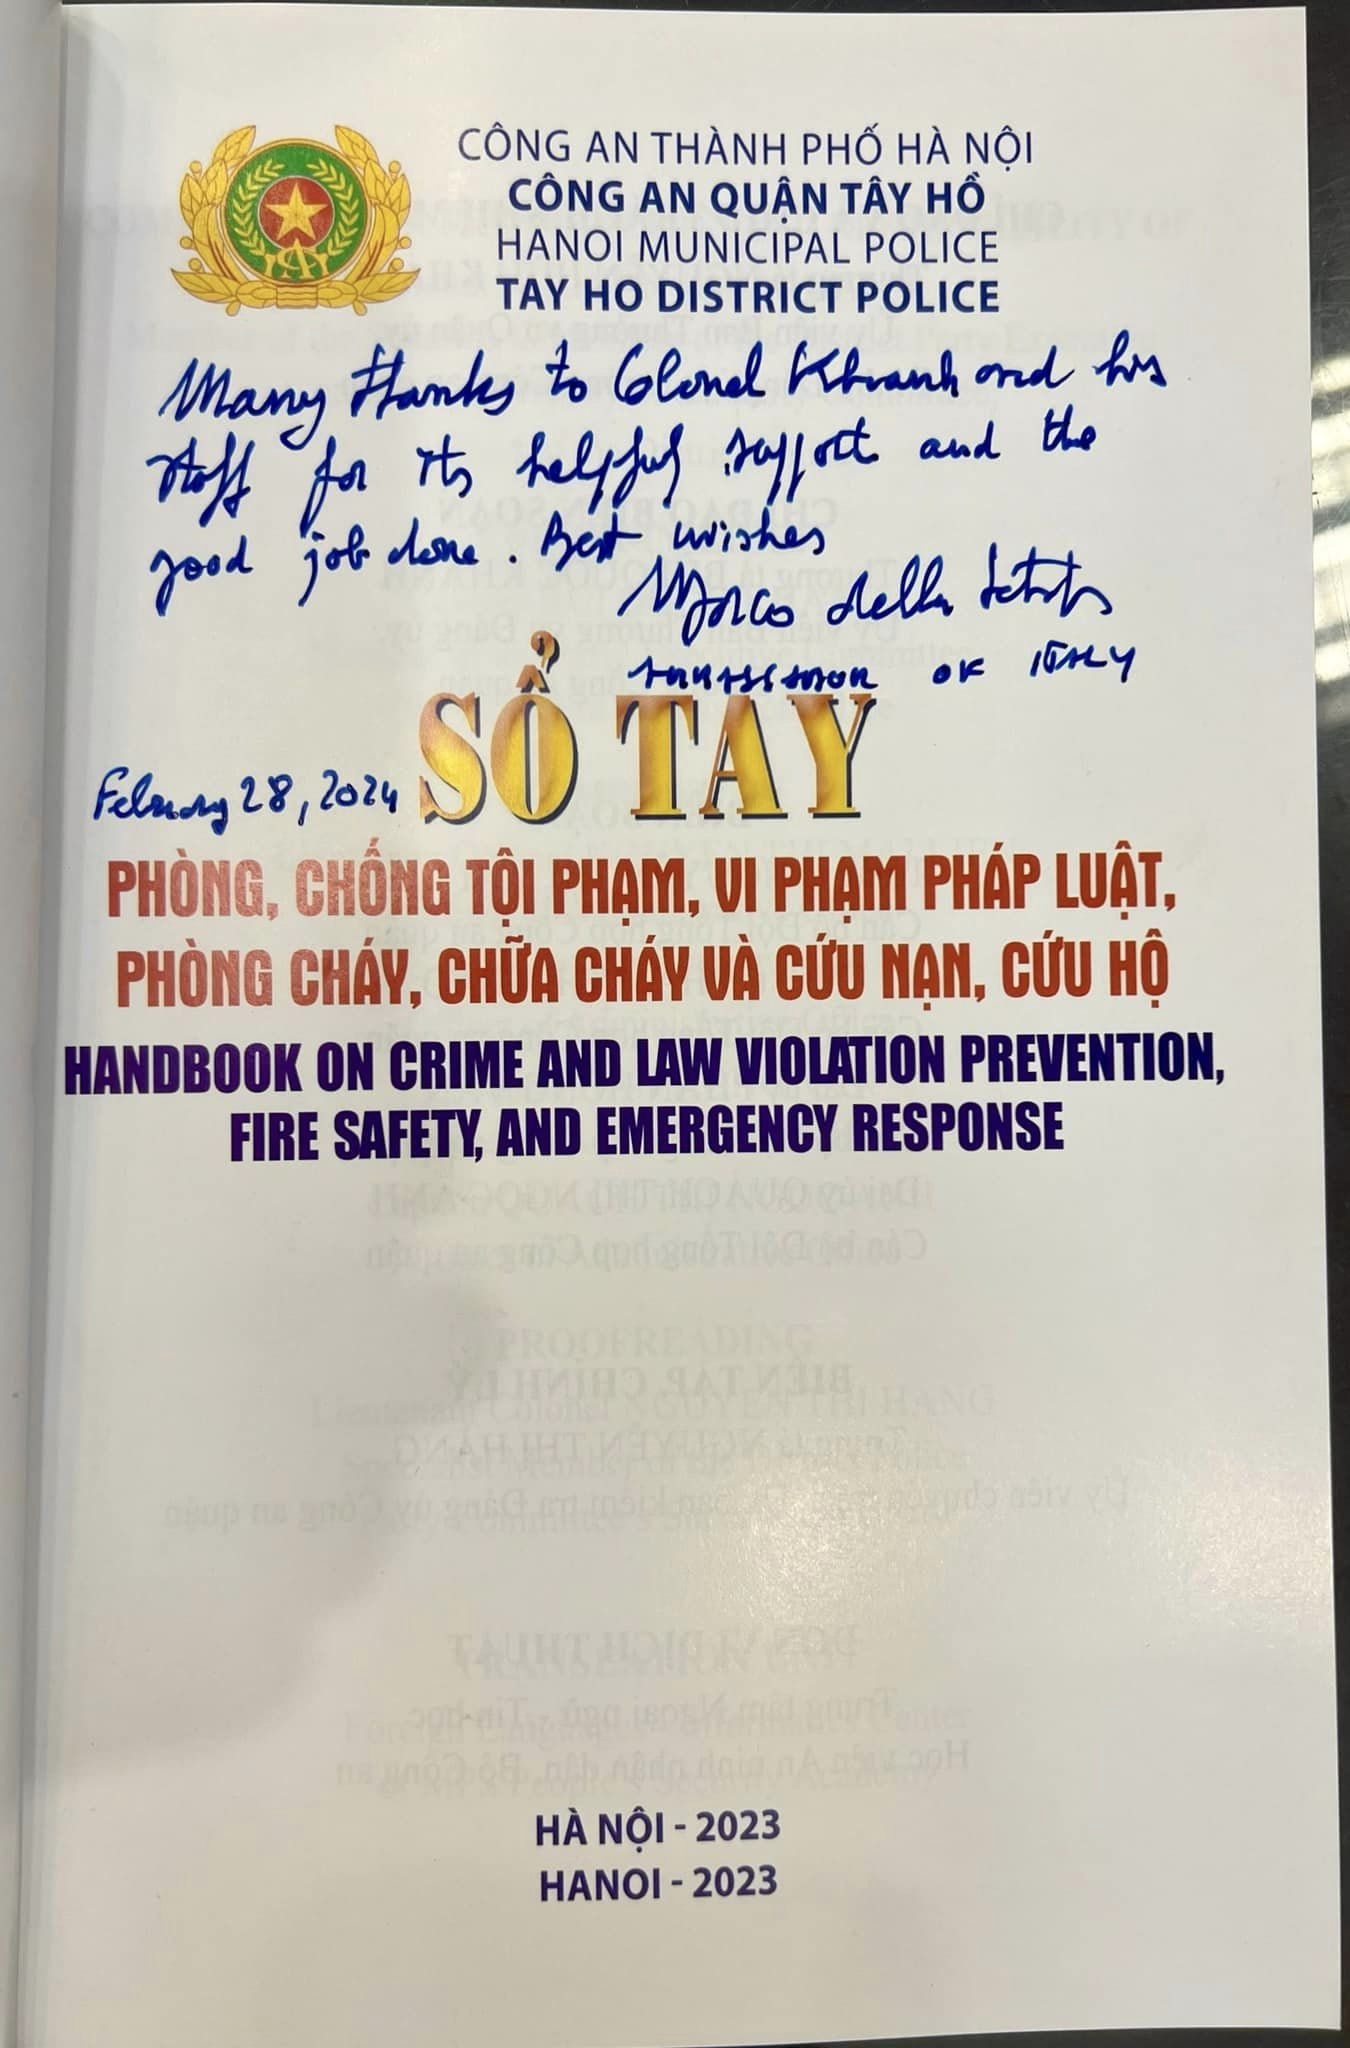 CÔNG AN THÀNH PHỐ HÀ NỘI
CÔNG AN QUẬN TÂY HỒ
HANOI MUNICIPAL POLICE
TAY HO DISTRICT POLICE
Many thanks to Colonel Khanh and his
staff for its helpful support and the
good job done. Best wishes
Marco della Seta
AMBASSADOR OF ITALY
SỔ TAY
February 28, 2024
PHÒNG, CHỐNG TỘI PHẠM, VI PHẠM PHÁP LUẬT,
PHÒNG CHÁY, CHỮA CHÁY VÀ CỨU NẠN, CỨU HỘ
HANDBOOK ON CRIME AND LAW VIOLATION PREVENTION,
FIRE SAFETY, AND EMERGENCY RESPONSE
HÀ NỘI - 2023
HANOI - 2023